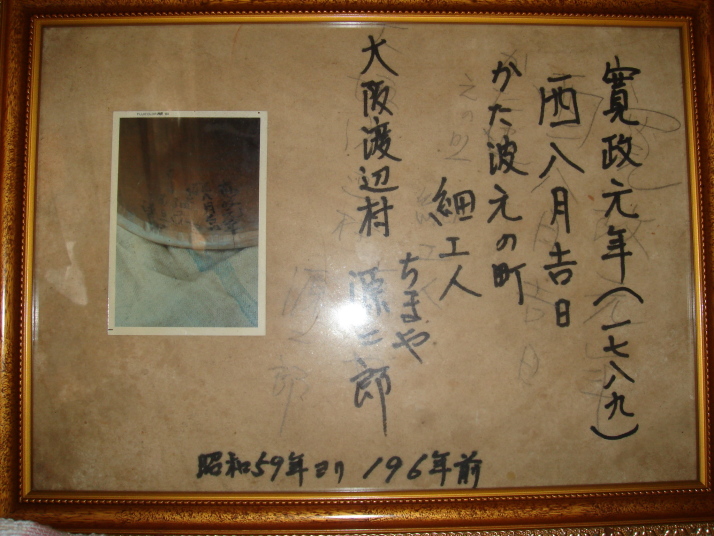 寛政元年(一七八九)
酉八月吉日
かた波えの町
細工人
ちまや
大阪渡辺村 源二郎
昭和59年ヨリ 196年前